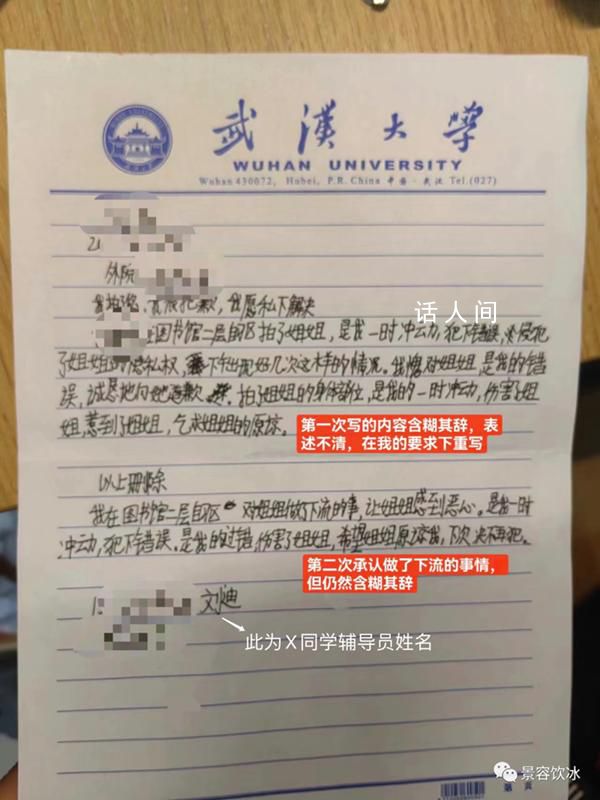 武漢大學
WUHAN UNIVERSITY
Wuhan 430072, Hubei, P.R. China 中国·武汉 Tel.(027)
外院
我拍了您,我很抱歉,我愿私下解决
话人间
在图书馆二层自区拍了姐姐,是我一时冲动,犯下错误,侵犯
了姐姐的隐私权,下午出现好几次这样的情况。我愧对姐姐,是我的错
误,诚恳地向她道歉。拍了姐姐的身体部位,是我的一时冲动,伤害了姐
姐,惹到了姐姐,乞求姐姐的原谅。
第一次写的内容含糊其辞,表
述不清,在我的要求下重写
以上删除
我在图书馆二层自区对姐姐做了下流的事,让姐姐感到恶心。是我一时
冲动,犯下错误。是我的过错,伤害了姐姐,希望姐姐原谅我,下次决不再犯。
第二次承认做了下流的事情,
但仍然含糊其辞
刘迪
此为X同学辅导员姓名
第 页
景容饮冰